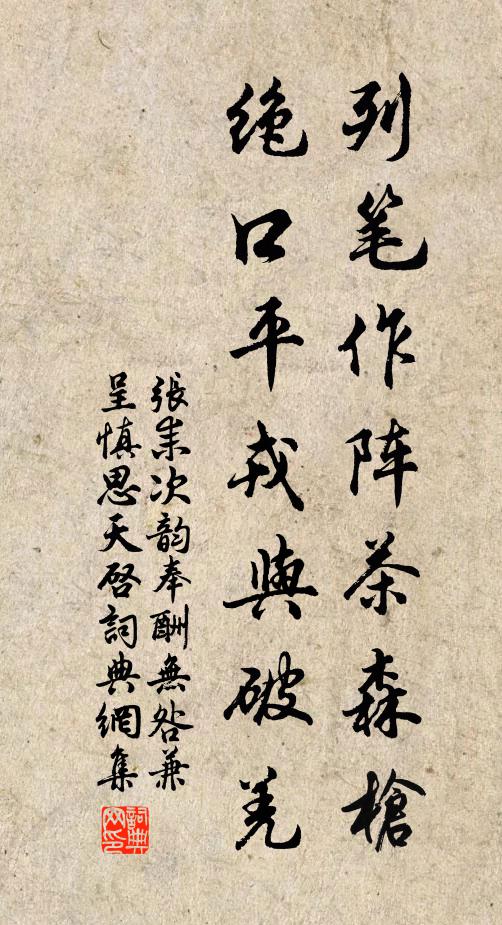 列笔作阵茶森槍
绝口平戎與破羌
張耒次韵奉酬無咎兼
呈慎思天启詞典網集
詞典网印